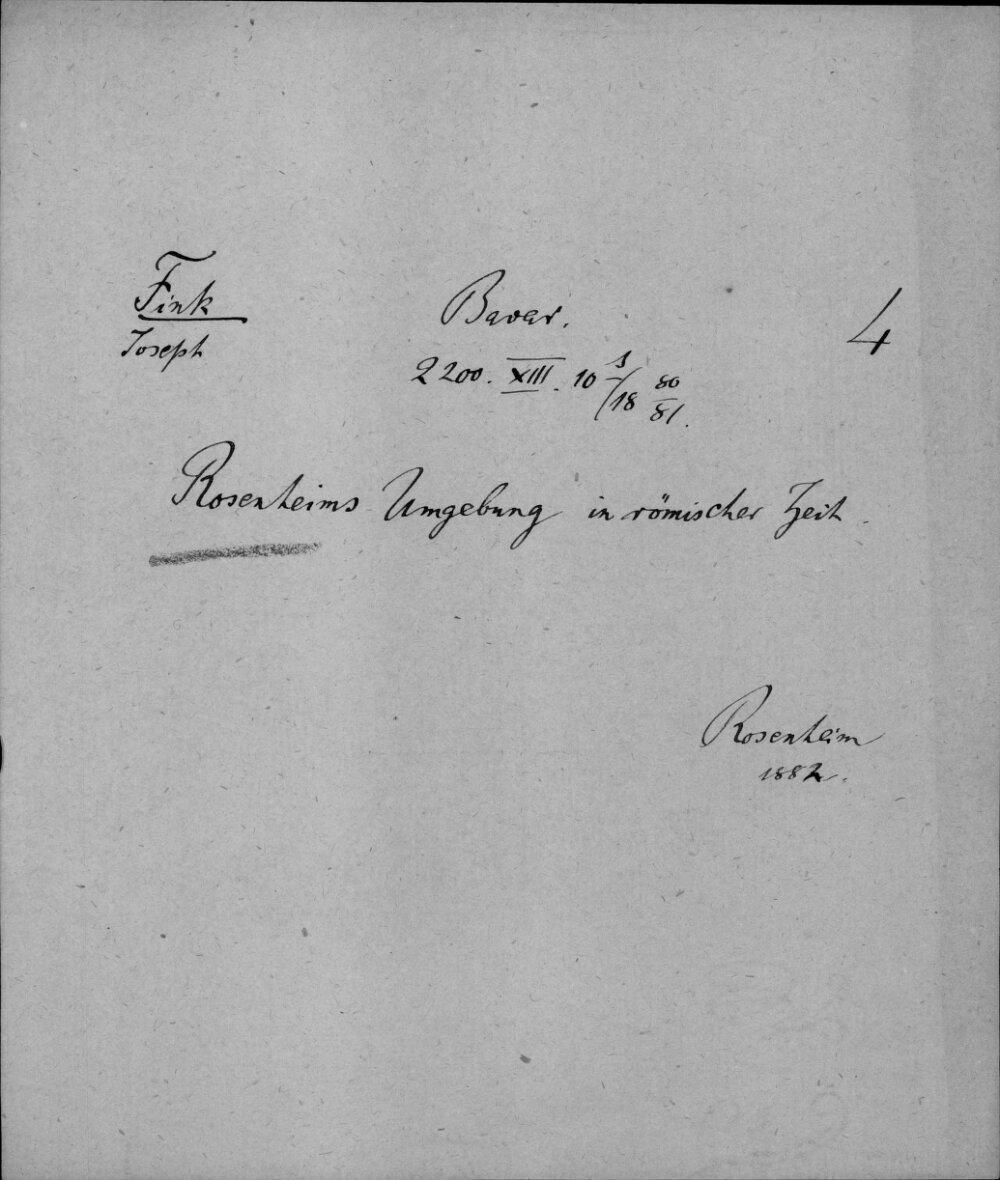 Fink
Joseph
Bavar. 4
2200. XIII. 10 s/18 80/81.
Rosenheims Umgebung in römischer Zeit.
Rosenheim
1882.